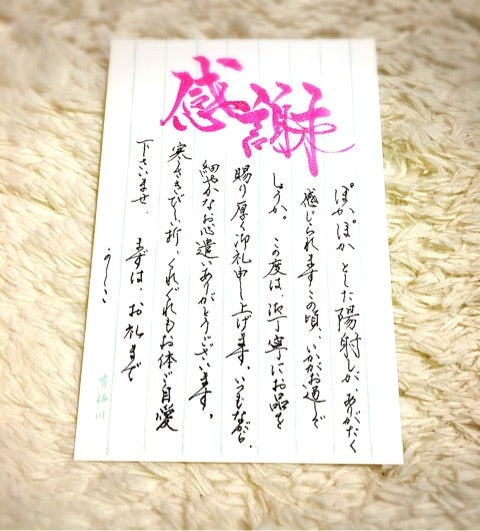 感謝
ぽかぽかとした陽射しが、ありがたく
感じられますこの頃、いかがお過しで
しょうか。この度は、御丁寧にお品を
賜り厚く御礼申し上げます。いつもながら、
細やかなお心遣いありがとうございます。
寒さきびしい折、くれぐれもお体ご自愛
下さいませ。まずは、お礼まで
かしこ